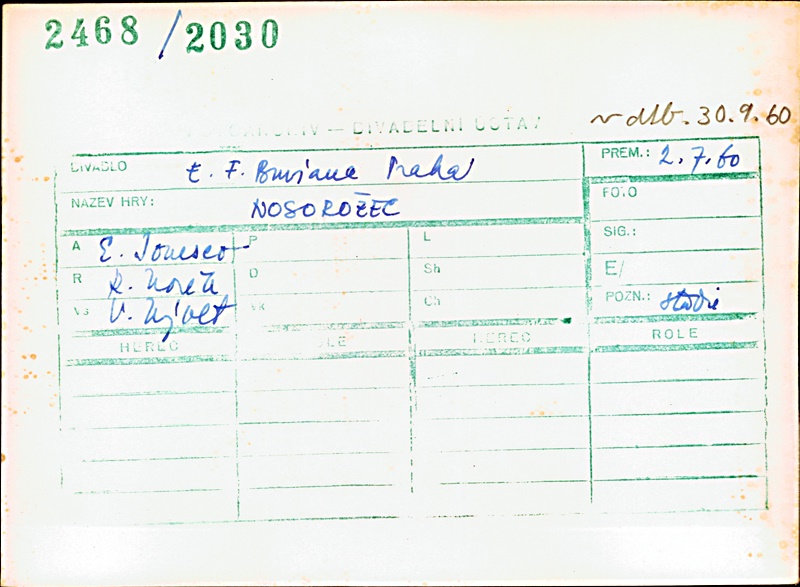 2468 / 2030
v dtb. 30.9.60
— DIVADELNÍ ÚSTAV
DIVADLO E. F. Buriana Praha PREM.: 2.7.60
NÁZEV HRY: NOSOROŽEC FOTO
A E. Ionesco P L SIG.:
R D Sh E/
VS V. Nývlt VK Ch POZN.: studie
HEREC ROLE HEREC ROLE